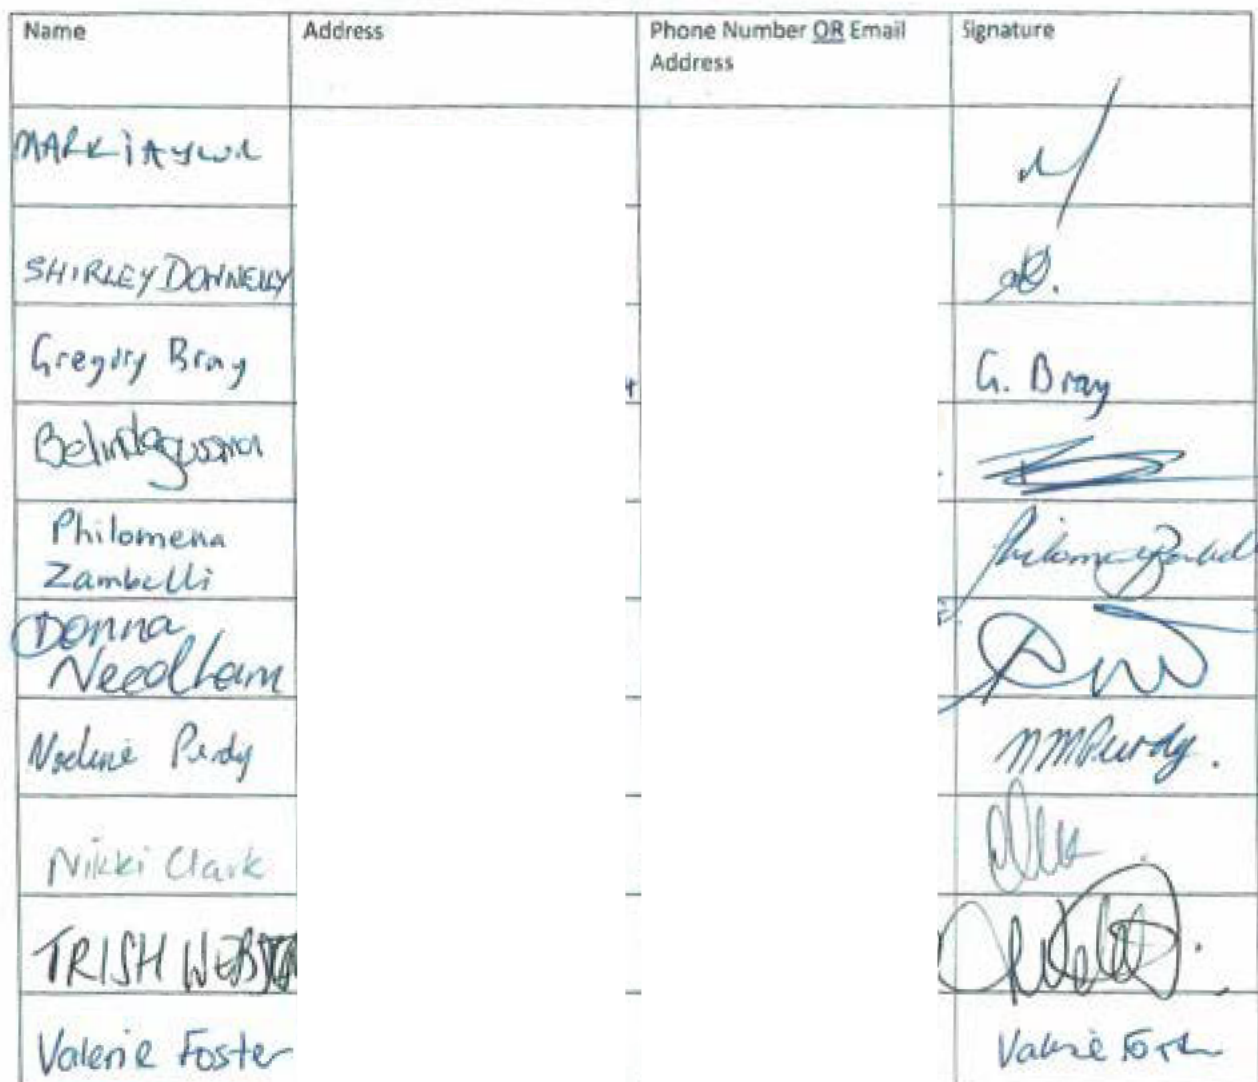 Name Address Phone Number OR Email Signature
Address
MARK
SHIRLEY DONNELLY
Gregory Bray G. Bray
Belinda
Philomena
Zambelli
Donna
Needham
Noelene Purdy NMPurdy.
Nikki Clark
TRISH WEBSTER
Valerie Foster Valerie Foster